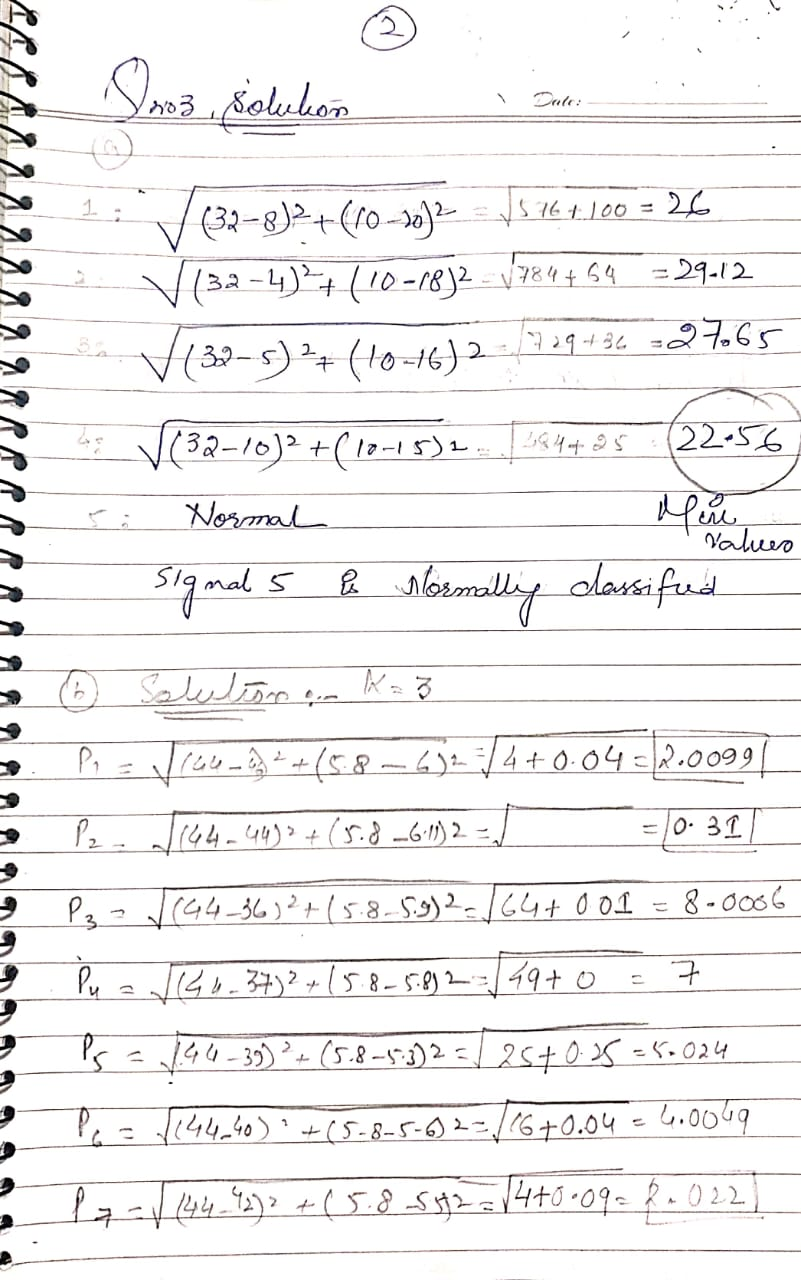 2
Qno3, Solution
Date:
a
1: √(32-8)²+(10-20)² = √576+100 = 26
2. √(32-4)²+(10-18)² = √784+64 = 29.12
3: √(32-5)²+(10-16)2 = √729+36 = 27.65
4: √(32-10)²+(10-15)2 = √484+25 22.56
5: Normal Min
Values
Signal 5 is Normally classified
b Solution :- K=3
P1 = √(44-)²+(5.8-6)2 = √4+0.04 = 2.0099
P2 = √(44-44)²+(5.8-6.11)2 = √ = 0.31
P3 = √(44-36)²+(5.8-5.9)2 = √64+0.01 = 8.0006
P4 = √(44-37)²+(5.8-5.8)2 = √49+0 = 7
P5 = √(44-39)²+(5.8-5.3)2 = √25+0.25 = 5.024
P6 = √(44-40)²+(5-8-5-6)2 = √16+0.04 = 4.0049
P7 = √(44-42)²+(5.8-5.5)2 = √4+0.09 = 2.022